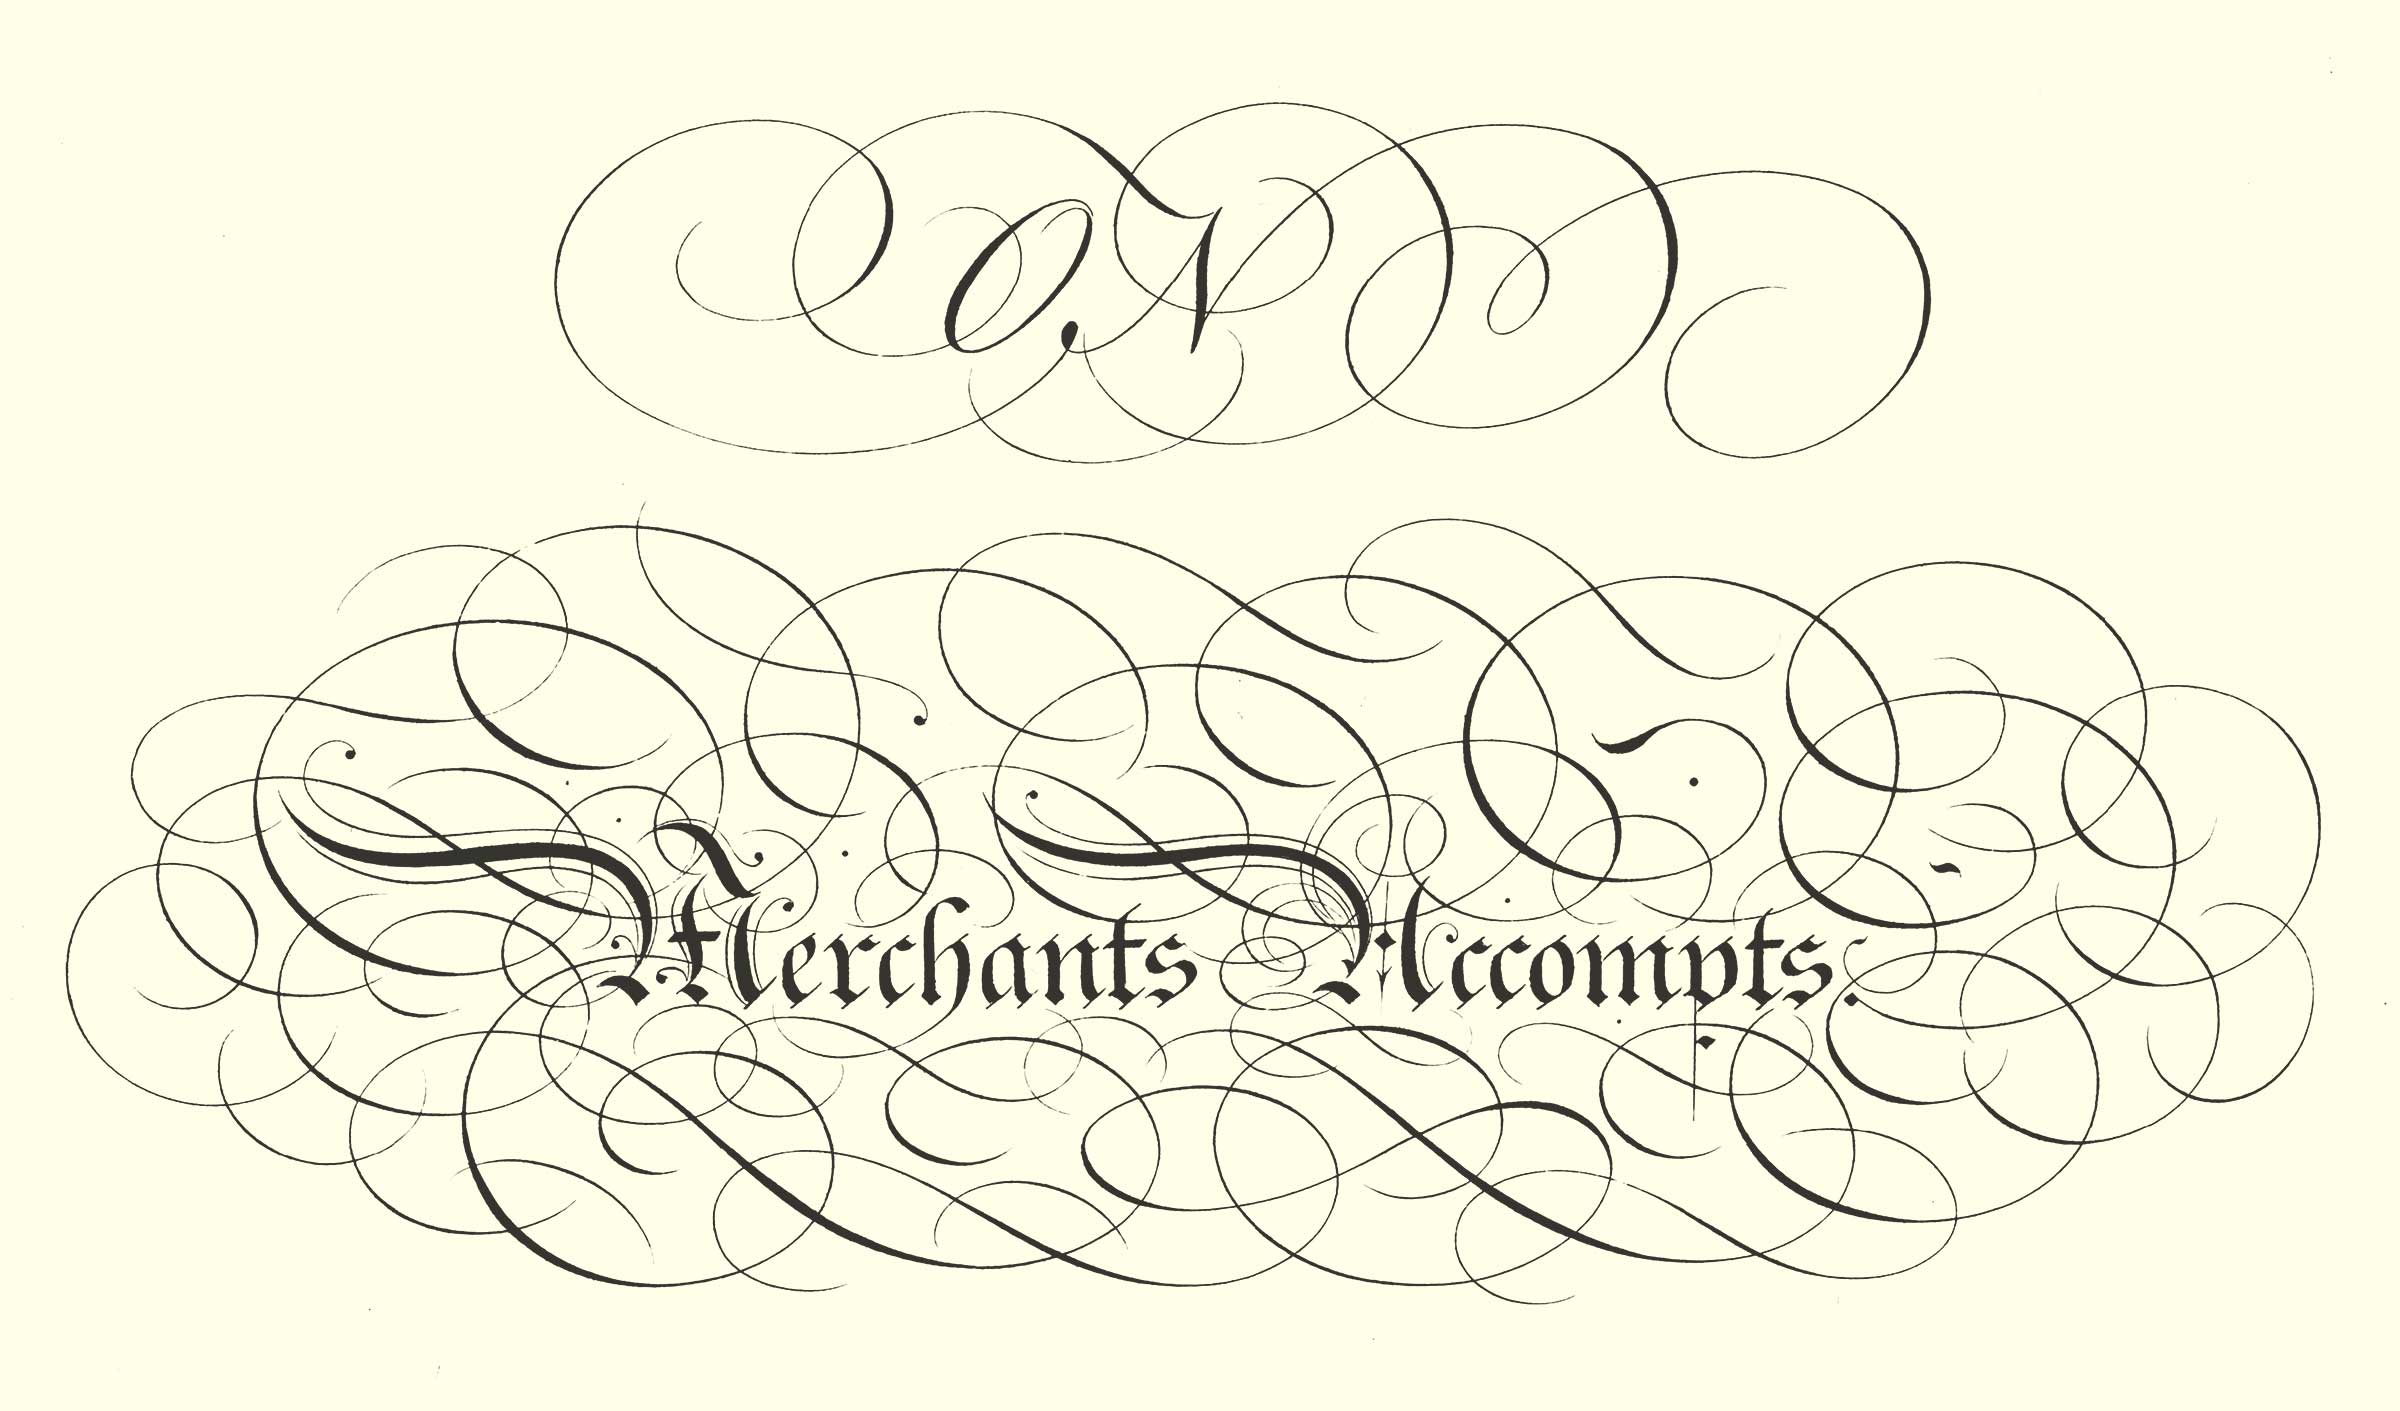 ON
Merchants Accompts.